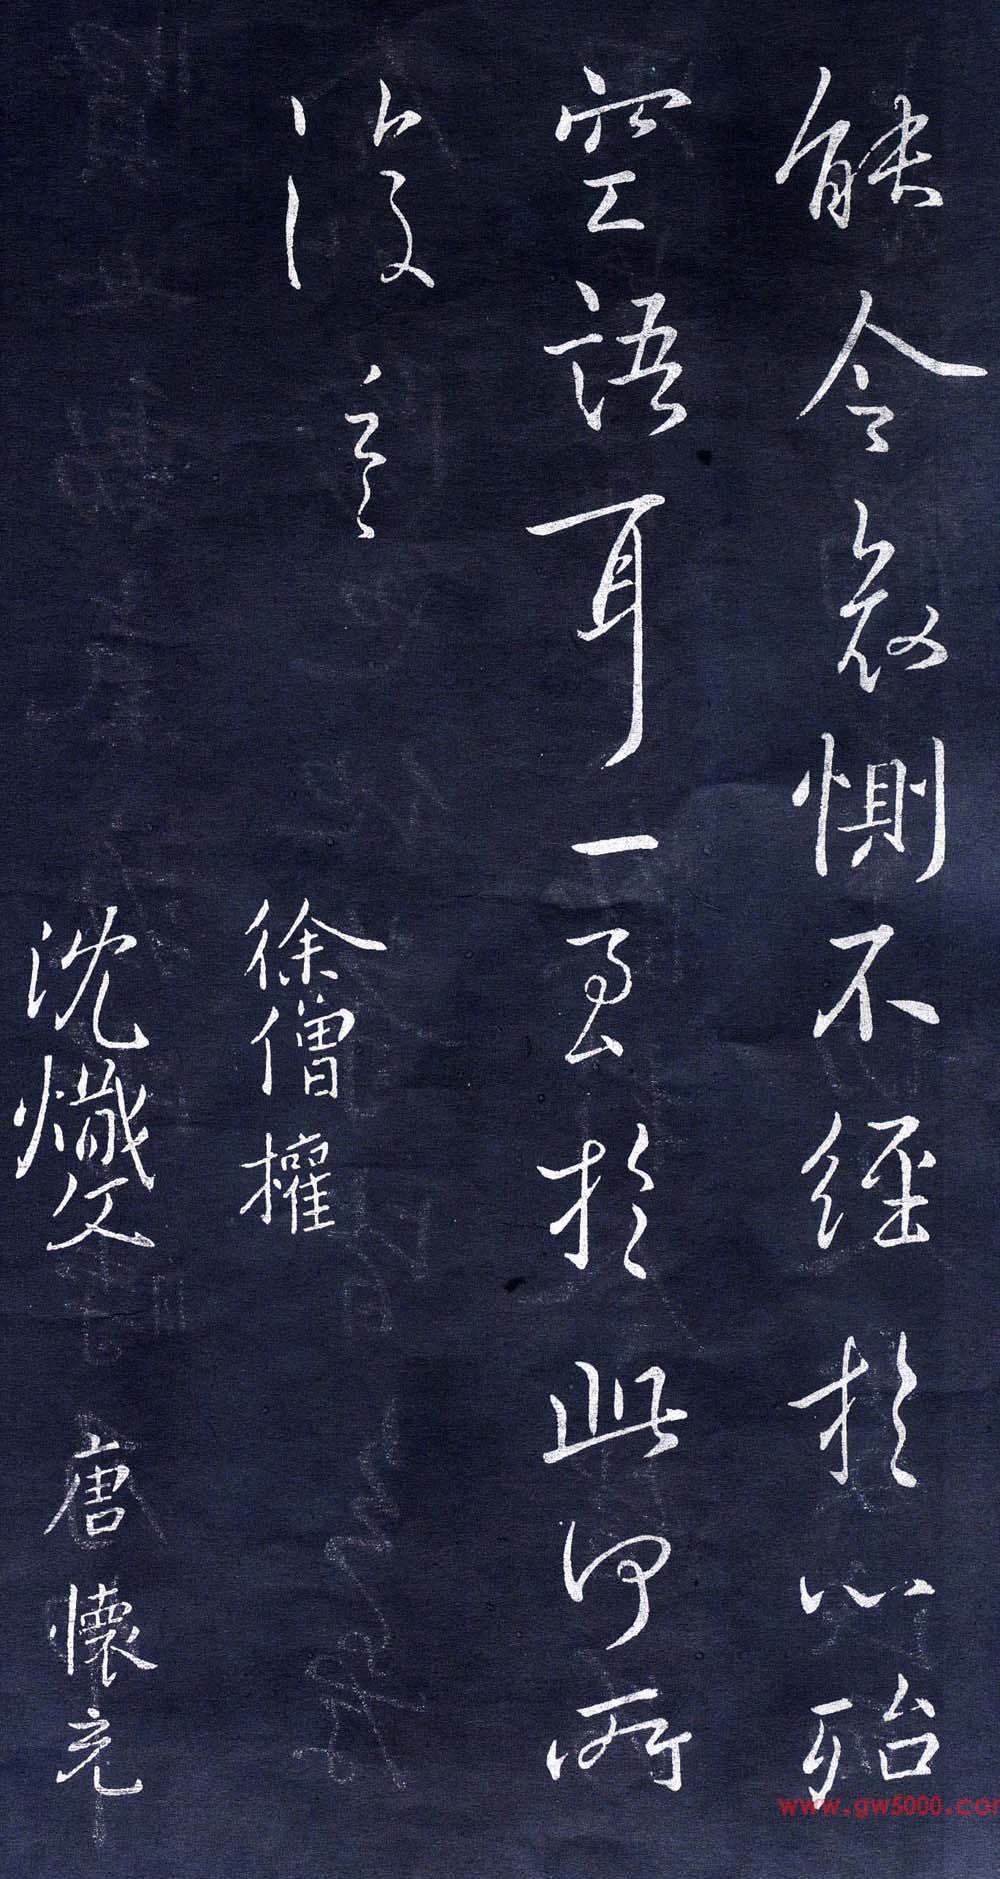 能令哀惻不經於心殆
空語耳一至於此何所
復言
徐僧權
沈熾文
唐懷充
www.gw5000.com